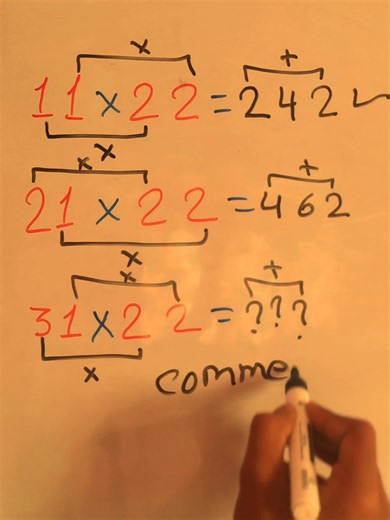 x +
11 x 22 = 242
x
x +
21 x 22 = 462
x
x +
31 x 22 = ???
x
comme